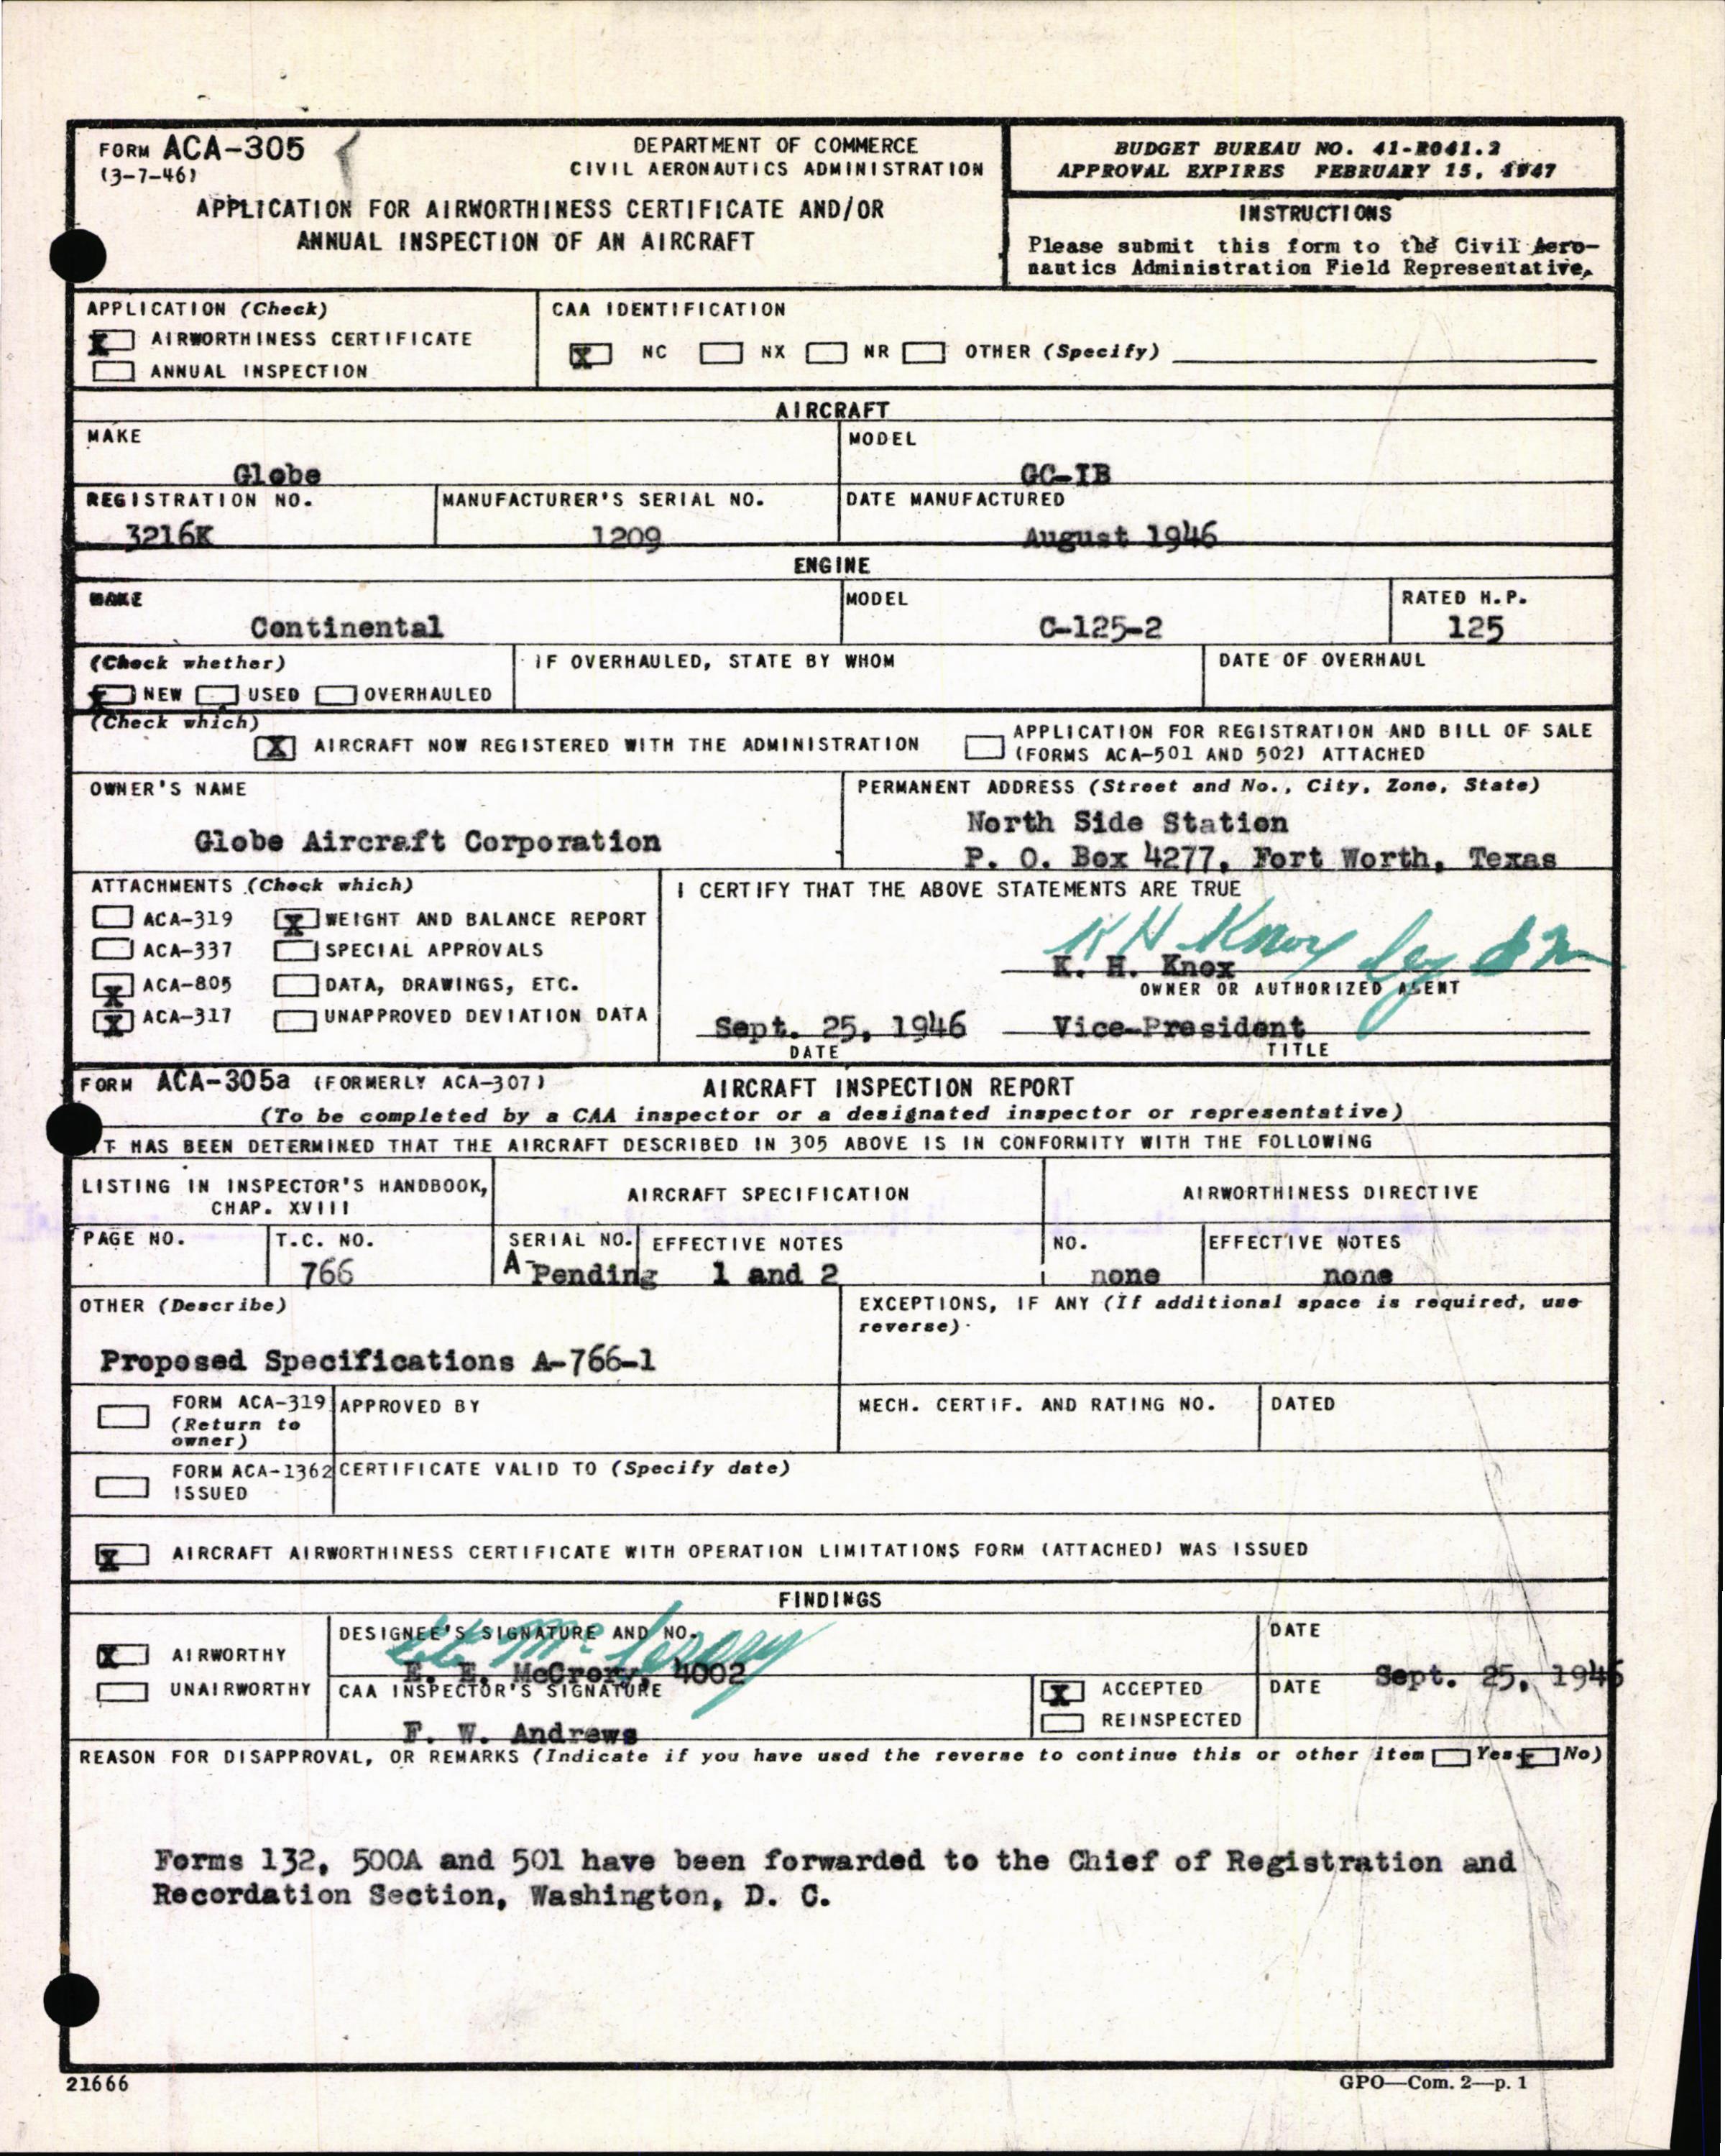 FORM ACA-305
(3-7-46)
DEPARTMENT OF COMMERCE
CIVIL AERONAUTICS ADMINISTRATION
APPLICATION FOR AIRWORTHINESS CERTIFICATE AND/OR
ANNUAL INSPECTION OF AN AIRCRAFT
BUDGET BUREAU NO. 41-R041.2
APPROVAL EXPIRES FEBRUARY 15, 1947
INSTRUCTIONS
Please submit this form to the Civil Aero-
nautics Administration Field Representative.
APPLICATION (Check)
X AIRWORTHINESS CERTIFICATE
ANNUAL INSPECTION
CAA IDENTIFICATION
X NC NX NR OTHER (Specify)
AIRCRAFT
MAKE
Globe
MODEL
GC-1B
REGISTRATION NO.
3216K
MANUFACTURER'S SERIAL NO.
1209
DATE MANUFACTURED
August 1946
ENGINE
MAKE
Continental
MODEL
C-125-2
RATED H.P.
125
(Check whether)
X NEW USED OVERHAULED
IF OVERHAULED, STATE BY WHOM
DATE OF OVERHAUL
(Check which)
X AIRCRAFT NOW REGISTERED WITH THE ADMINISTRATION
APPLICATION FOR REGISTRATION AND BILL OF SALE
(FORMS ACA-501 AND 502) ATTACHED
OWNER'S NAME
Globe Aircraft Corporation
PERMANENT ADDRESS (Street and No., City, Zone, State)
North Side Station
P. O. Box 4277, Fort Worth, Texas
ATTACHMENTS (Check which)
ACA-319 X WEIGHT AND BALANCE REPORT
ACA-337 SPECIAL APPROVALS
X ACA-805 DATA, DRAWINGS, ETC.
X ACA-317 UNAPPROVED DEVIATION DATA
I CERTIFY THAT THE ABOVE STATEMENTS ARE TRUE
K H Knox by
K. H. Knox
OWNER OR AUTHORIZED AGENT
Sept. 25, 1946 Vice-President
DATE TITLE
FORM ACA-305a (FORMERLY ACA-307) AIRCRAFT INSPECTION REPORT
(To be completed by a CAA inspector or a designated inspector or representative)
IT HAS BEEN DETERMINED THAT THE AIRCRAFT DESCRIBED IN 305 ABOVE IS IN CONFORMITY WITH THE FOLLOWING
LISTING IN INSPECTOR'S HANDBOOK,
CHAP. XVIII
AIRCRAFT SPECIFICATION
AIRWORTHINESS DIRECTIVE
PAGE NO.
T.C. NO.
766
SERIAL NO.
A-Pending
EFFECTIVE NOTES
1 and 2
NO.
none
EFFECTIVE NOTES
none
OTHER (Describe)
Proposed Specifications A-766-1
EXCEPTIONS, IF ANY (If additional space is required, use
reverse)
FORM ACA-319
(Return to
owner)
APPROVED BY
MECH. CERTIF. AND RATING NO.
DATED
FORM ACA-1362
ISSUED
CERTIFICATE VALID TO (Specify date)
X AIRCRAFT AIRWORTHINESS CERTIFICATE WITH OPERATION LIMITATIONS FORM (ATTACHED) WAS ISSUED
FINDINGS
X AIRWORTHY
UNAIRWORTHY
DESIGNEE'S SIGNATURE AND NO.
E. E. McCrory, 4002
DATE
Sept. 25, 1946
CAA INSPECTOR'S SIGNATURE
F. W. Andrews
X ACCEPTED
REINSPECTED
DATE
REASON FOR DISAPPROVAL, OR REMARKS (Indicate if you have used the reverse to continue this or other item Yes X No)
Forms 132, 500A and 501 have been forwarded to the Chief of Registration and
Recordation Section, Washington, D. C.
21666
GPO—Com. 2—p. 1